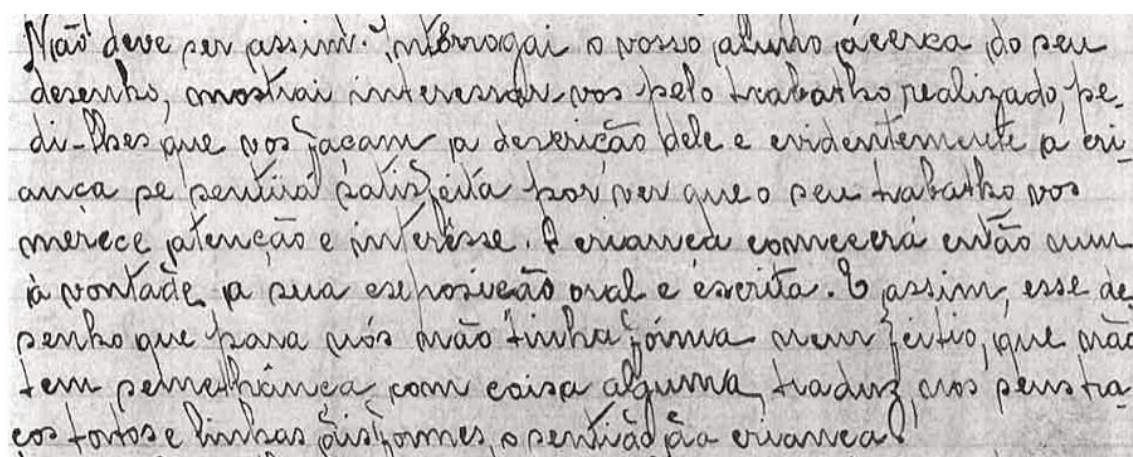 Não deve ser assim. Interrogai o vosso aluno ácerca do seu
desenho, mostrai interessar-vos pelo trabalho realizado, pe-
di-lhes que vos façam a descrição dele e evidentemente a cri-
ança se sentirá satisfeita por ver que o seu trabalho vos
merece atenção e interêsse. A criança comecerá então num
à vontade a sua exposição oral e escrita. E assim, esse de-
senho que para nós não tinha fórma nem feitio, que não
tem semelhança com coisa alguma, traduz nos seus tra-
ços tortos e linhas disformes, o sentido da criança!